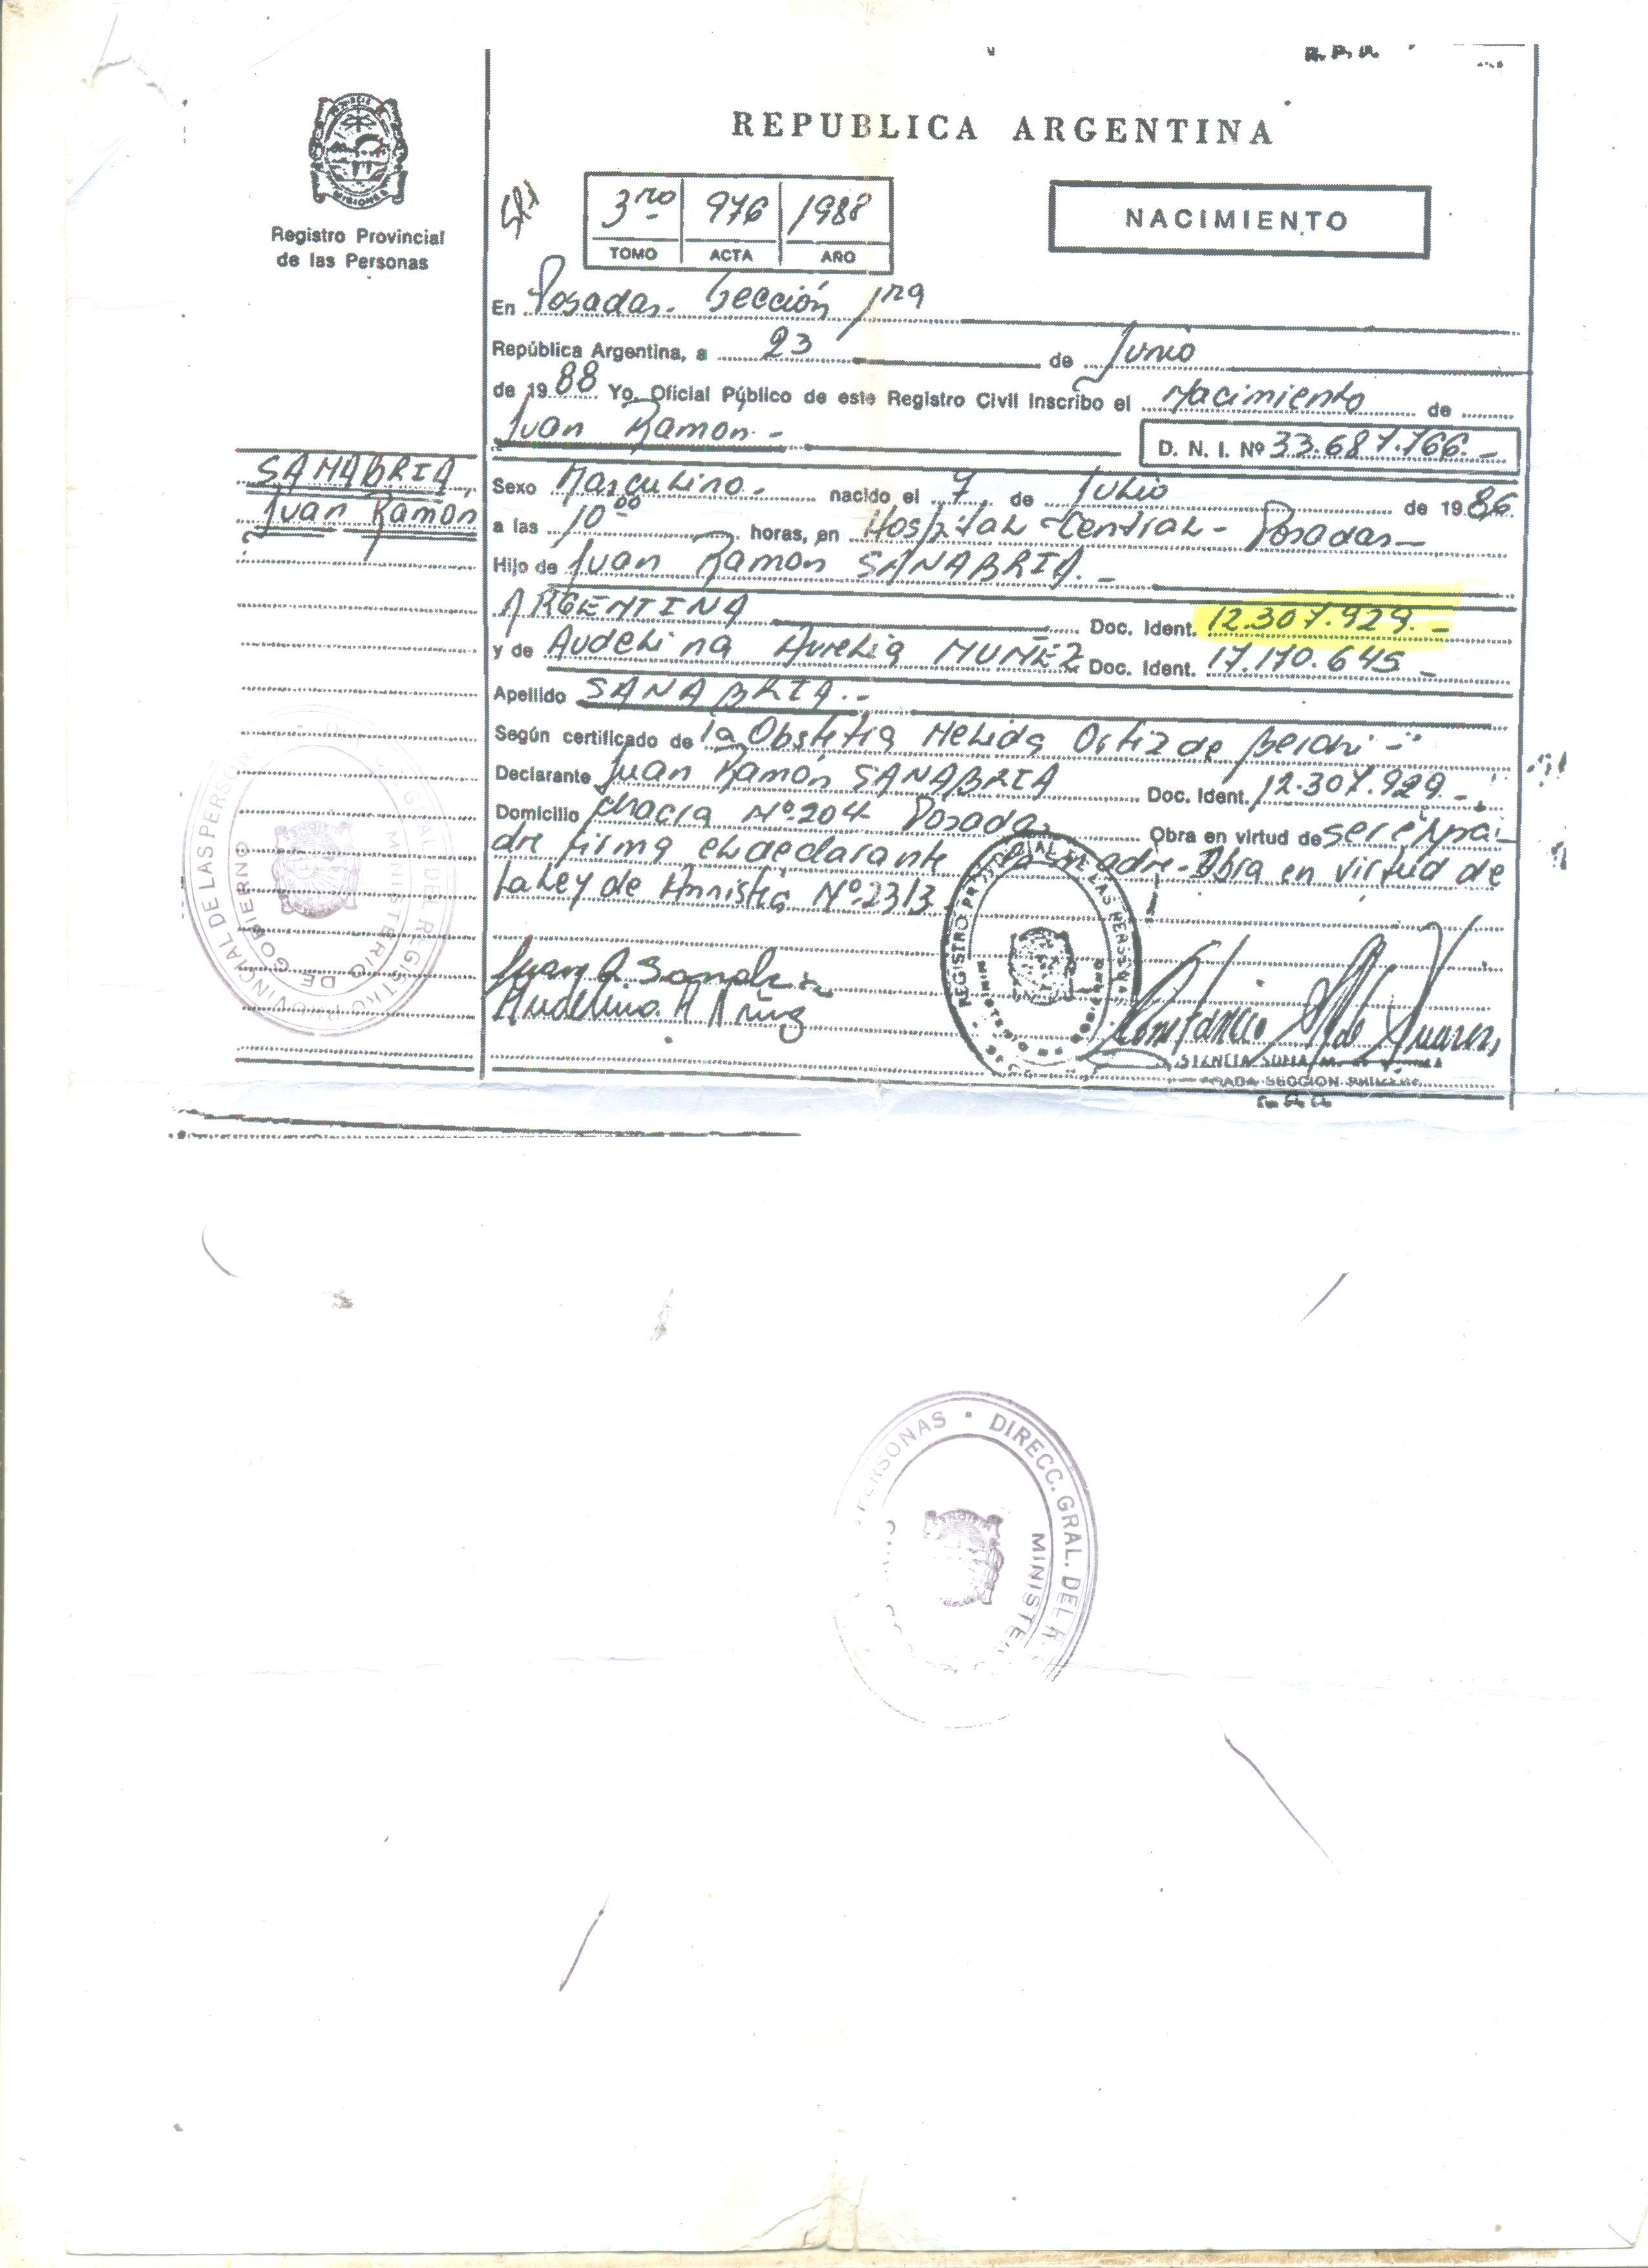 REPUBLICA ARGENTINA
MISIONES
Registro Provincial
de las Personas
3ro 976 1988
TOMO ACTA AÑO
NACIMIENTO
En Posadas- Sección 1ra
República Argentina, a 23 de Junio
de 1988 Yo, Oficial Público de este Registro Civil Inscribo el Nacimiento de
Juan Ramón.-
D. N. I. Nº 33.687.766.-
SANABRIA,
Juan Ramón
Sexo Masculino.- nacido el 7 de Julio de 1986
a las 10 00 horas, en Hospital Central- Posadas-
Hijo de Juan Ramón SANABRIA.-
ARGENTINA Doc. Ident. 12.307.929.-
y de Audelina Aurelia NUÑEZ Doc. Ident. 17.170.645-
Apellido SANABRIA.-
Según certificado de la Obstétra Nelida Ortiz de
Declarante Juan Ramón SANABRIA Doc. Ident. 12.307.929-
Domicilio Chacra Nº204- Posadas Obra en virtud de ser el pa-
dre firma el declarante madre- Obra en virtud de
la Ley de Amnistía Nº2313
REGISTRO PROVINCIAL DE LAS PERSONAS
MINISTERIO DE GOBIERNO
Juan R Sanabria
Audelina A Nuñez
SECCION
DIRECC. GRAL. DEL REGISTRO PROVINCIAL DE LAS PERSONAS
MINISTERIO DE GOBIERNO
PERSONAS • DIRECC. GRAL. DEL R
MINISTE